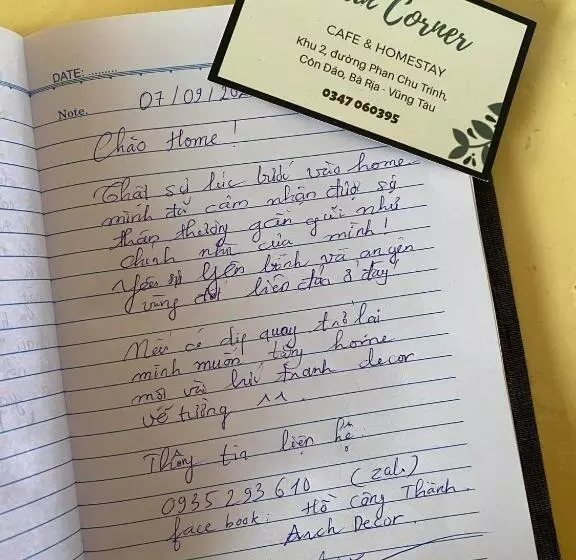 Corner
CAFE & HOMESTAY
Khu 2, đường Phan Chu Trinh,
Côn Đảo, Bà Rịa - Vũng Tàu
0347 060395
DATE: ........
Note.
07/09/202
Chào Home!
Thật sự lúc bước vào home
mình đã cảm nhận được sự
thân thương gần gũi như
chính nhà của mình!
Yêu sự yên bình và an yên
vùng đất biển đảo ở đây
Nếu có dịp quay trở lại
mình muốn tặng home
một vài bức tranh decor
vẽ tường ^^.
Thông tin liên hệ
0935 293 610 (zalo)
facebook: Hồ Công Thành
Anch Decor.